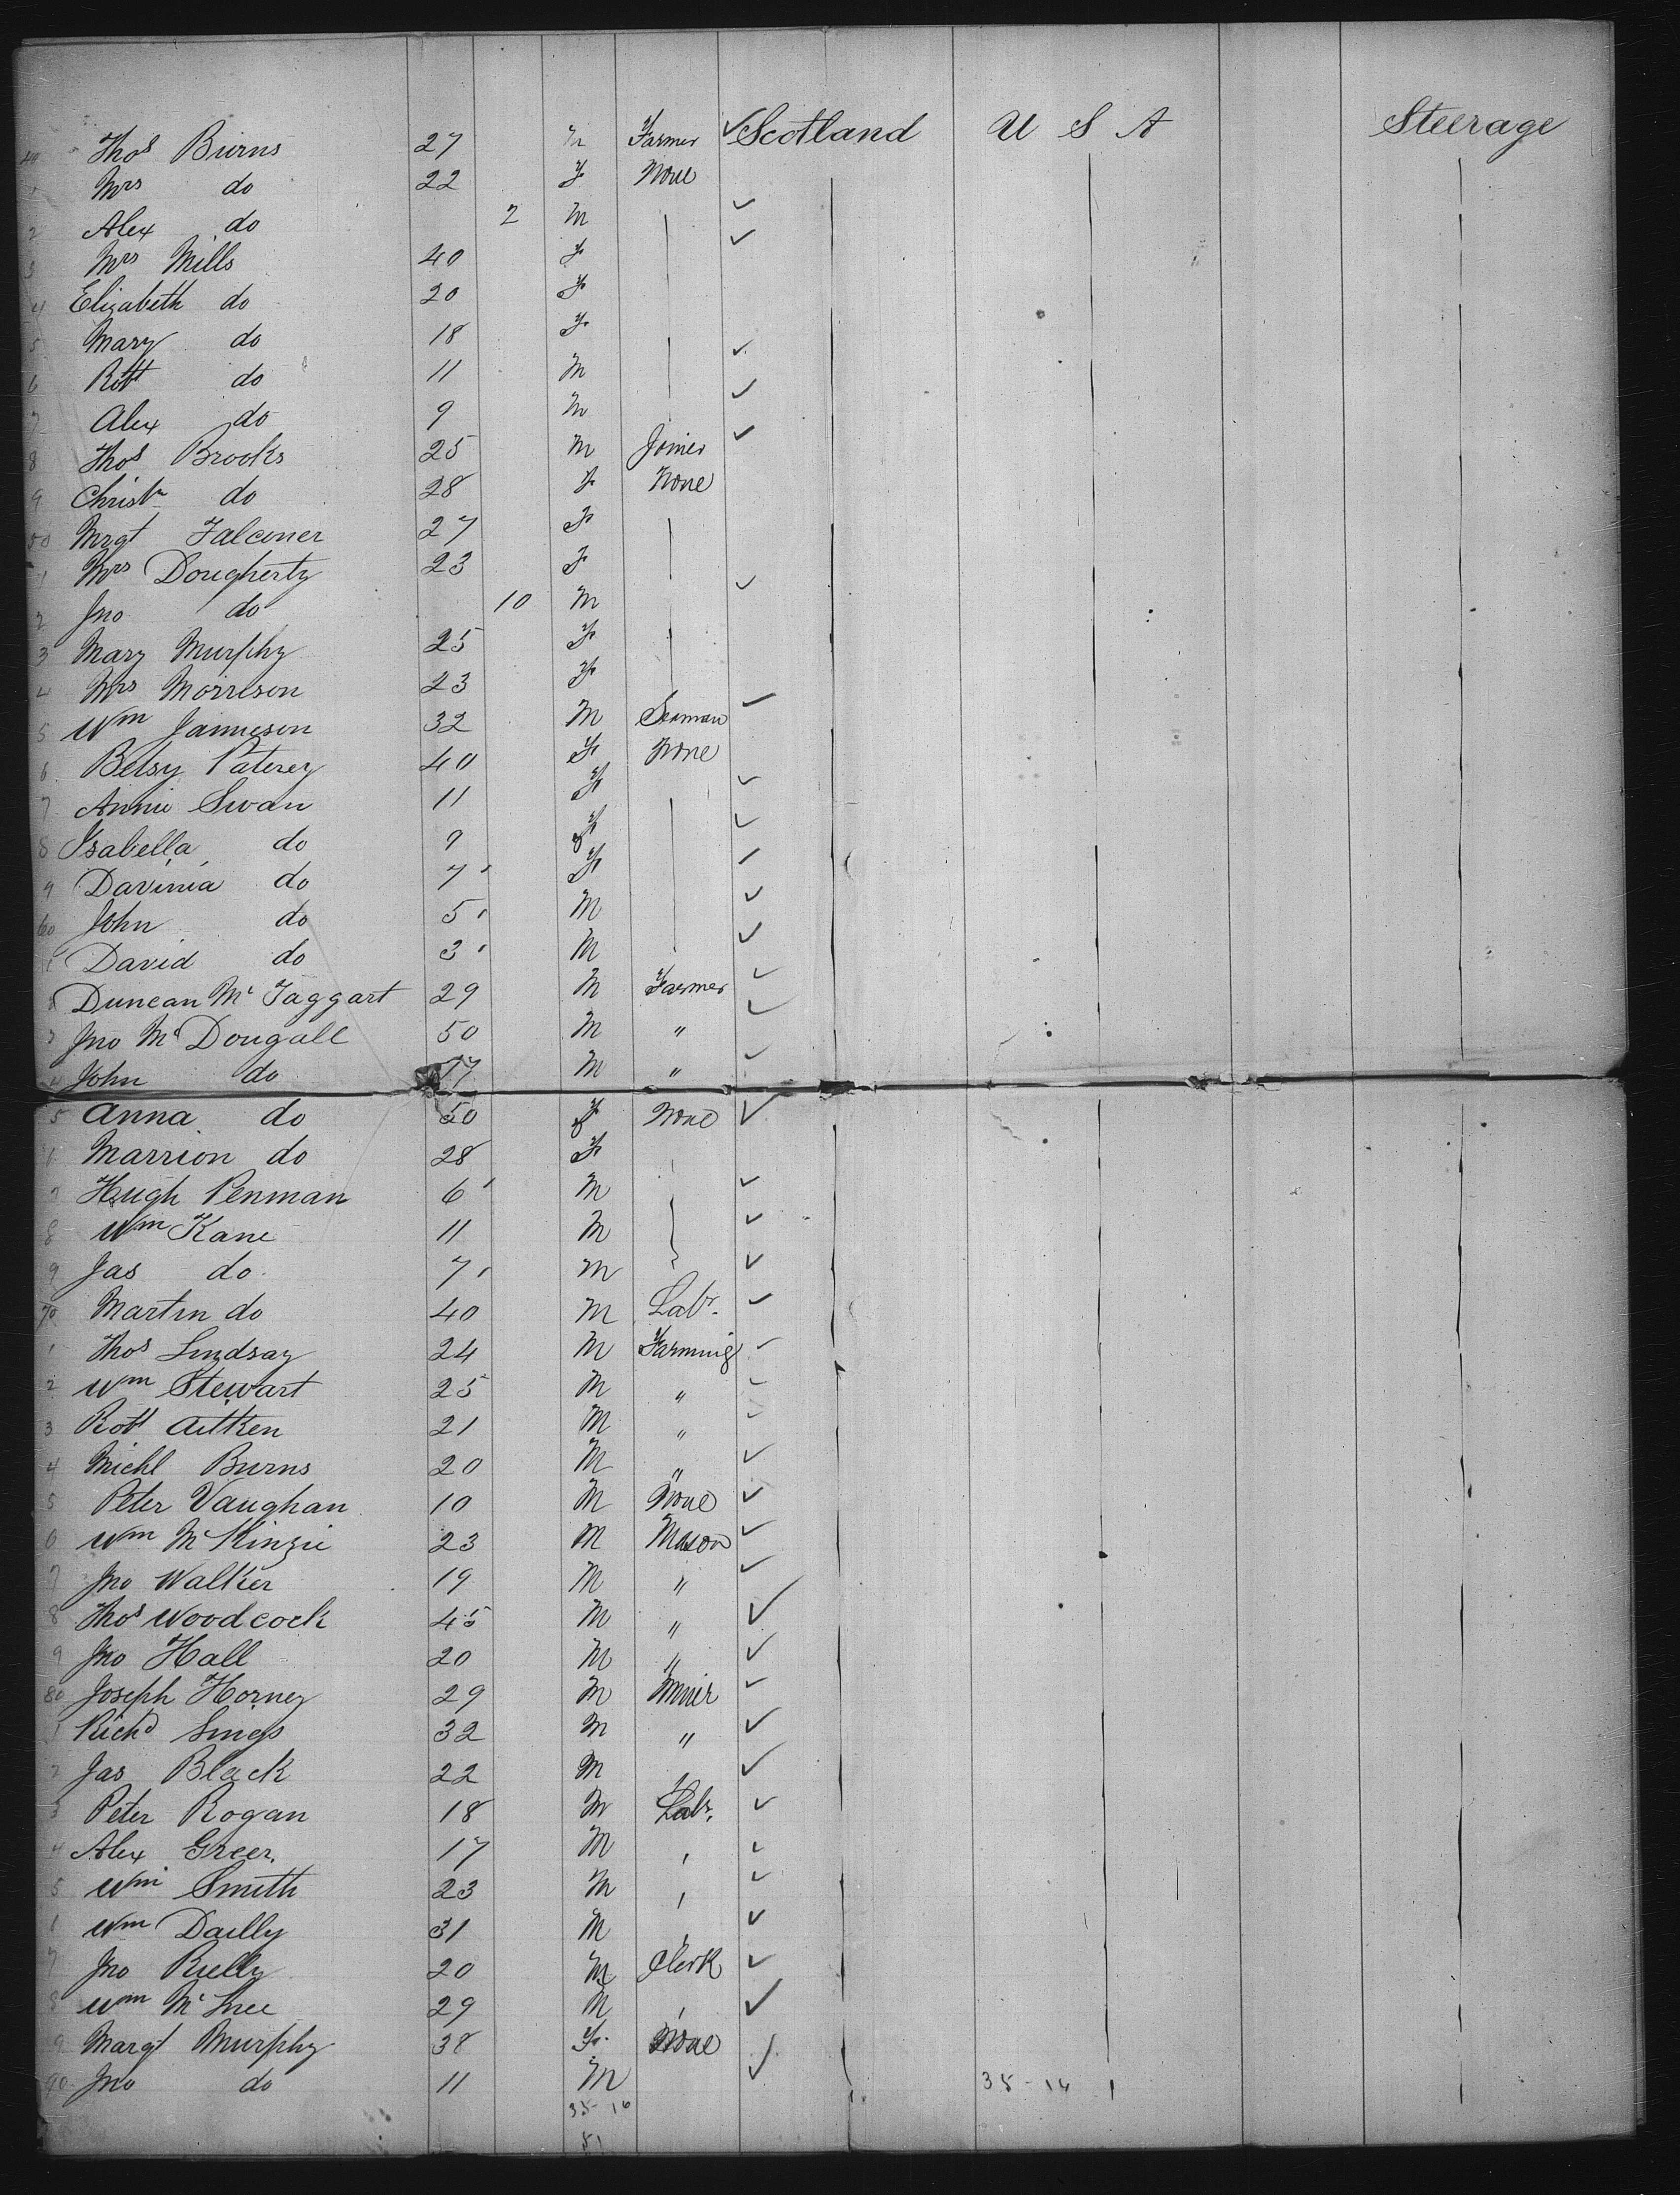 40 Thos Burns 27 M Farmer ✓ Scotland U S A Steerage
1 Mrs do 22 F None
2 Alex do 2 M ✓
3 Mrs Mills 40 F ✓
4 Elizabeth do 20 F
5 Mary do 18 F
6 Robt do 11 M ✓
7 Alex do 9 M ✓
8 Thos Brooks 25 M Joiner ✓
9 Christn do 28 F None
50 Mrgt Falconer 27 F
1 Mrs Dougherty 23 F
2 Jno do 10 M ✓
3 Mary Murphy 25 F
4 Mrs Morrison 23 F
5 Wm Jamieson 32 M Seaman ✓
6 Betsy Paterey 40 F None
7 Annie Swan 11 F ✓
8 Isabella do 9 F ✓
9 Davinia do 7 F ✓
60 John do 5 M ✓
1 David do 3 M ✓
2 Duncan Mc Taggart 29 M Farmer ✓
3 Jno Mc Dougall 50 M " ✓
4 John do 17 M " ✓
5 Anna do 50 F None ✓
6 Marrion do 28 F
7 Hugh Penman 6 M ✓
8 Wm Kane 11 M ✓
9 Jas do 7 M ✓
70 Martin do 40 M Labr. ✓
1 Thos Lindsay 24 M Farming ✓
2 Wm Stewart 25 M " ✓
3 Robt Aitken 21 M " ✓
4 Michl Burns 20 M " ✓
5 Peter Vaughan 10 M None ✓
6 Wm Mc Kinzie 23 M Mason ✓
7 Jno Walker 19 M " ✓
8 Thos Woodcock 45 M " ✓
9 Jno Hall 20 M " ✓
80 Joseph Horney 29 M Miner ✓
1 Richd 32 M " ✓
2 Jas Black 22 M ✓
3 Peter Rogan 18 M Labr. ✓
4 Alex Greer. 17 M ' ✓
5 Wm Smith 23 M ' ✓
6 Wm Dailly 31 M ' ✓
7 Jno Rielly 20 M Clerk ✓
8 Wm Mc 29 M ' ✓
9 Margt Murphy 38 F. None ✓
90 Jno do 11 M ✓ 35-16
35-16
51